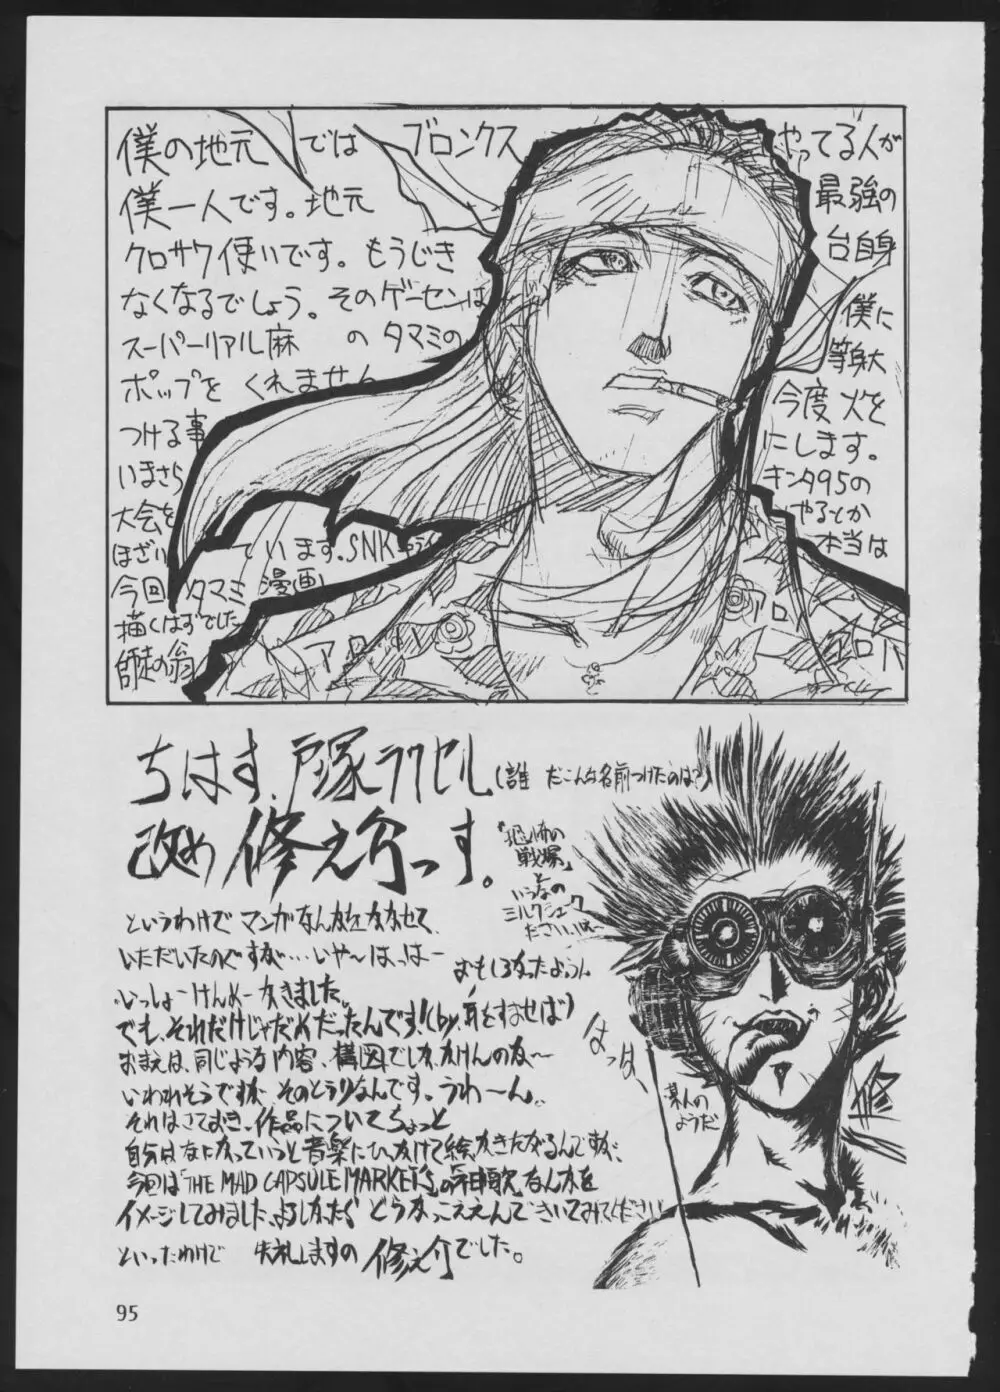 僕の地元では ブロンクス やってる人が
僕一人です。地元 最強の
クロサワ使いです。もうじき 台自身
なくなるでしょう。そのゲーセンは 僕に
スーパーリアル麻 の タマミの 等身大
ポップを くれません 今度 火を
つける事 にします。
いまさら キンタ95の
大会を やるとか
ほざい ています。SNK 本当は
今回 タマミ 漫画
描くはずでした
師走の翁
アロハ
アロ
アロハ
ちはす、戸塚ラクセル (誰 だこんな名前つけたのは?)
改め 修え介っす。
『恐怖の
戦場』
と
いうなの
ミルクシェーク
ださいは〜
というわけで マンガなんかをかかせて、
いただいたのですが…いや〜はっはー
おもしろかったようん
いっしょーけんめーかきました。
でも、それだけじゃだめだったんです!(by.耳をすませば)
おまえは、同じような内容、構図でしか、かけんのか〜
いわれそうですが そのとうりなんです。うわ〜ん。
それはさておき、作品についてちょっと
自分はなにかっていうと音楽にひっかけて絵、かきたがるんですが、
今回は「THE MAD CAPSULE MARKETS」の なんかを
イメージしてみました、よろしかったら どうかっこええんできいてみてください
といったわけで 失礼しますの 修え介でした。
はっはっ
某人の
ようだ
修
95